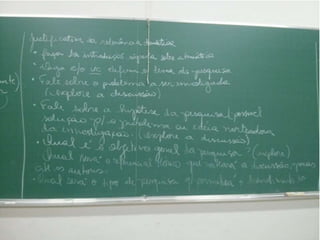 Justificativa da relevância temática
• faça uma introdução rápida sobre a temática
• vc defina o tema da pesquisa
• Fale sobre o problema a ser investigado
(explore a discussão)
• Fale sobre a hipótese da pesquisa possível
solução p/ o problema ou ideia norteadora
da investigação. (explore a discussão)
• Qual é o objetivo geral da pesquisa? (explore)
Qual será o referencial teórico que a discussão, quais
os autores.
• Qual será o tipo de pesquisa q